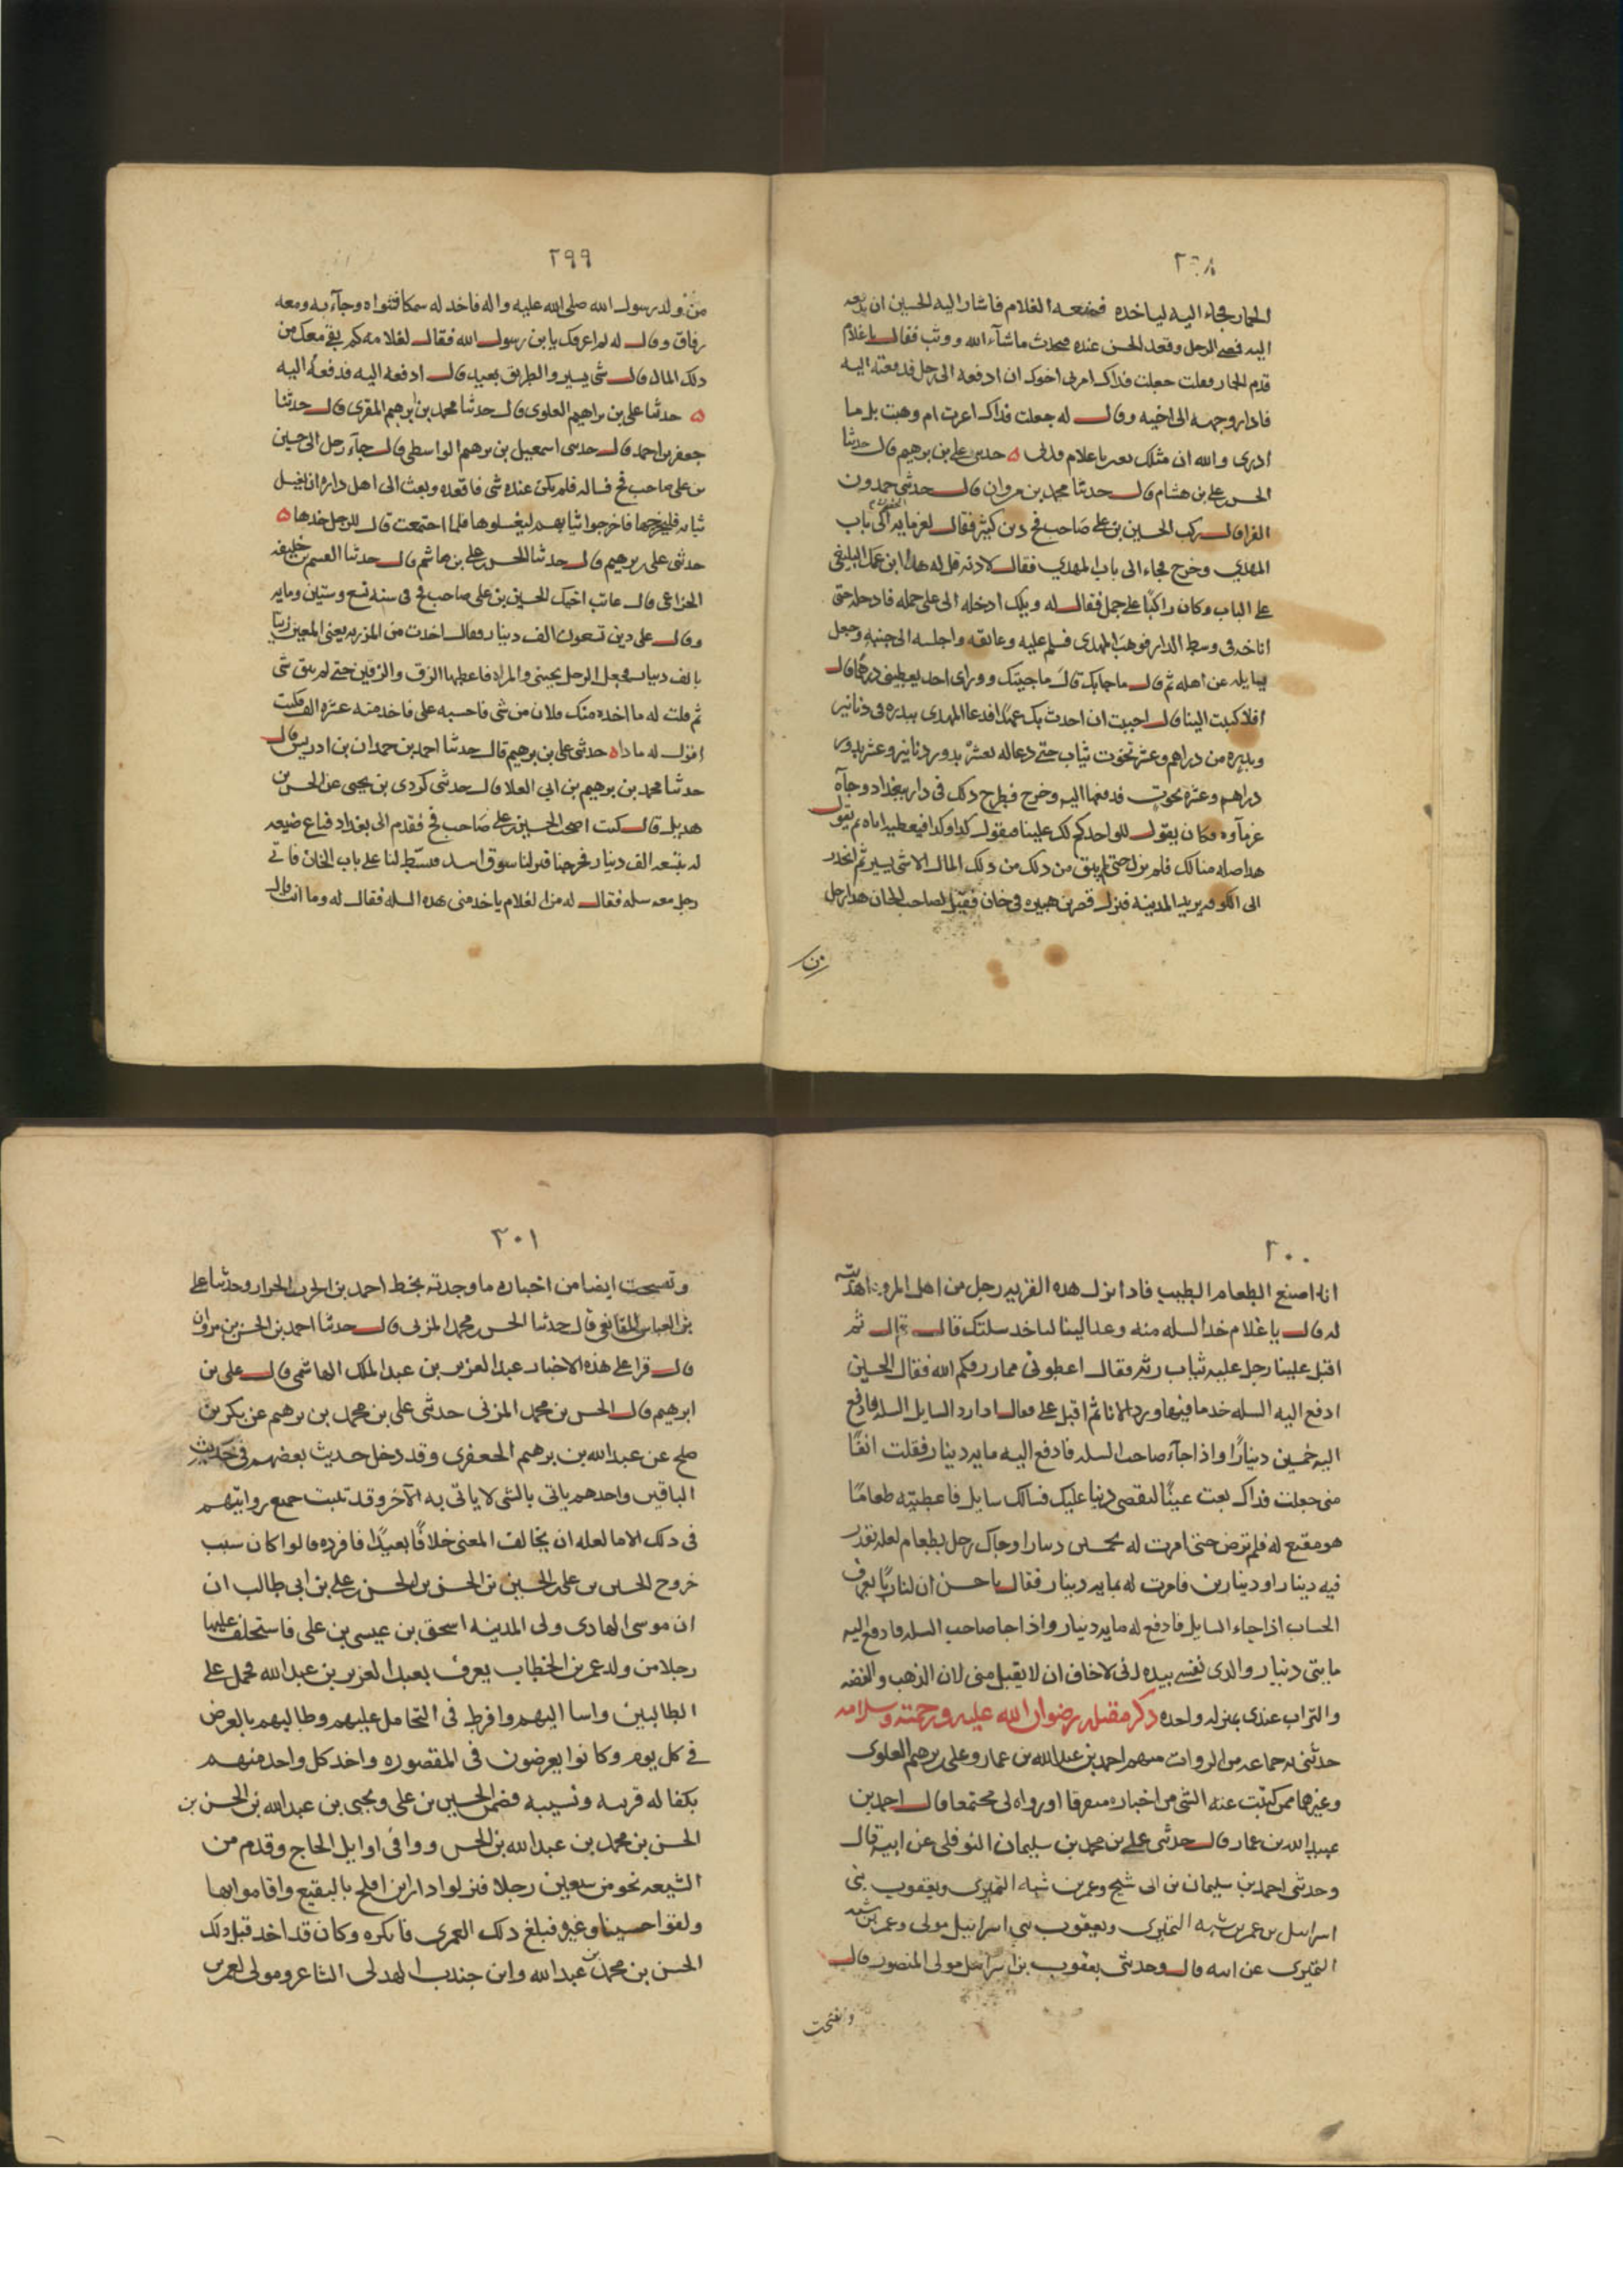 ٢٩٨
الحمار فجاء اليه لياخذه فمنعه الغلام فاشار اليه الحسين ان يدفعه
اليه فمضى الرجل وقعد الحسن عنده فتحدث ماشآء الله ووثب فقال يا غلام
قدم الحمار فقلت جعلت فداك امرنى اخوك ان ادفعه الى رجل فدفعته اليه
فادار وجهه الى اخيه وقال له جعلت فداك اعرت ام وهبت بل ما
ادرى والله ان مثلك يعير يا غلام حدثنى على بن برهيم قال حدثنا
الحسن بن على بن هشام قال حدثنا محمد بن مروان قال حدثنى حمدون
الفرا قال ركب الحسين بن على صاحب فخ دين كثير فقال لغرمايه الى باب
المهدى وخرج فجاء الى باب المهدي فقال لاذنه قل له هذا ابن عمك الينبعى
على الباب وكان راكبًا على جمل فقال له ويلك ادخله الى على جمله فادخله حتى
اناخه فى وسط الدار فوثب المهدى فسلم عليه وعانقه واجلسه الى جنبه وجعل
يسايله عن اهله ثم قال ما جابك قال ما جيتك وورائى احد يعطينى درهمًا قال
افلا كتبت الينا قال احببت ان احدث بك عهدًا فدعا المهدى ببدره فى دنانير
وبدره من دراهم وعشر تخوت ثياب حتى دعا له بعشر بدور دنانير وعشر بدور
دراهم وعشره تخوت فدفعها اليه وخرج فطرح ذلك فى دار ببغداد وجآء
غرمآوه فكان يقول للواحد كم لك علينا فيقول كذا وكذا فيعطيه اياه ثم يقول
هذا صله منا لك فلم يزل حتى لم يبق من ذلك من ذلك المال الا شى يسير ثم انحدر
الى الكوفه يريد المدينه فنزل قصر بن هبيره فى خان فقيل لصاحب الخان هذا رجل
من
٢٩٩
من ولد رسول الله صلى الله عليه واله فاخذ له سمكا فشواه وجآء به ومعه
رقاق وقال له لم اعرفك يابن رسول الله فقال لغلامه كم بقى معك من
ذلك المال قال شى يسير والطريق بعيد قال ادفعه اليه فدفعه اليه
حدثنا على بن براهيم العلوى قال حدثنا محمد بن ابرهيم المقرى قال حدثنا
جعفر بن احمد قال حدثنى اسمعيل بن برهيم الواسطى قال جآء رجل الى حسين
بن على صاحب فخ فساله فلم يكن عنده شى فاقعده وبعث الى اهل داره ان اغسل
ثيابه فليخرجها فاخرجوا ثيابهم ليغسلوها فلما اجتمعت قال للرجل خذها
حدثنى على بن برهيم قال حدثنا الحسن بن على بن هاشم قال حدثنا القسم بن خليفه
الخزاعى قال عاتب اخيك الحسين بن على صاحب فخ فى سنه تسع وستين ومايه
وقال على دين تسعون الف دينار فقال اخذت من
بالف دينار فجعل الرجل يجيئنى والمراه فاعطيها الزق والزقين حتى لم يبق شى
ثم قلت له ما اخذه منك فلان من شى فاحسبه على فاخذ منه عشره الف فكيت
اقول له ماذا حدثنى على بن برهيم قال حدثنا احمد بن حمدان بن ادريس قال
حدثنا محمد بن برهيم بن ابى العلا قال حدثنى كردى بن يحيى عن الحسن بن
هديل قال كنت اصحب الحسين بن على صاحب فخ فقدم الى بغداد فباع ضيعه
له بتسعه الف دينار فخرجنا فنزلنا سوق اسد فبسط لنا على باب الخان فاتى
رجل معه سله فقال له مر الغلام ياخذ منى هذه السله فقال له وما انت قال
٣٠٠
انا اصنع الطعام الطيب فاذا نزل هذه القريه رجل من اهل المروه اهديته
له قال يا غلام خذ السله منه وعد الينا لتاخذ سلتك قال ثم
اقبل علينا رجل عليه ثياب رثه فقال اعطونى مما رزقكم الله فقال الحسين
ادفع اليه السله خذ ما فيها ورد الانا ثم اقبل على فقال اذا رد السايل السله فادفع
اليه خمسين دينارًا واذا جآء صاحب السله فادفع اليه مايه دينار فقلت انفًا
منى جعلت فداك بعت عينًا لتقضى دينا عليك فسالك سايل فاعطيته طعامًا
هو مقنع له فلم ترض حتى امرت له بخمسين دينارا وجاك رجل بطعام لعله يقدر
فيه دينار او دينارين فامرت له بمايه دينار فقال يا حسن ان لنا ربًا يعرف
الحساب اذا جاء السايل فادفع له مايه دينار واذا جا صاحب السله فادفع اليه
مايتى دينار والذى نفسى بيده انى لاخاف ان لا يقبل منى لان الذهب والفضه
والتراب عندى بمنزله واحده ذكر مقتله رضوان الله عليه ورحمته وسلامه
حدثنى به جماعه من الروات منهم احمد بن عبيد الله بن عمار وعلى بن برهيم العلوى
وغيرهما ممن كتبت عنه الشى من اخباره متفرقا او رواه لى مجتمعا قال احمد بن
عبيد الله بن عمار قال حدثنى على بن محمد بن سليمان النوفلى عن ابيه قال
وحدثنى احمد بن سليمان بن ابى شيخ وعمر بن شبه النميرى ويعقوب بنى
اسراييل بن عمر بن شبه النميرى ويعقوب بنى اسرائيل مولى وعمر بن شبه
النميرى عن ابيه قال وحدثنى يعقوب بن اسرائيل مولى المنصور قال
ونسخت
٣٠١
ونسخت ايضا من اخباره ما وجدته بخط احمد بن الحرث الخراز وحدثنا على
بن العباس المقانعى قال حدثنا الحسن بن محمد المزنى قال حدثنا احمد بن الحسن بن مروان
قال قرا على هذه الاخبار عبد العزيز بن عبد الملك الهاشمى قال على بن
ابرهيم قال الحسن بن محمد المزنى حدثنى على بن محمد بن برهيم عن بكر بن
صلح عن عبد الله بن برهيم الجعفرى وقد دخل حديث بعضهم فى حديث
الباقين واحدهم ياتى بالشى لا ياتى به الآخر وقد تثبت جميع رواياتهم
فى ذلك الا ما لعله ان يخالف المعنى خلافًا بعيدًا فافرده قالوا كان سبب
خروج الحسين بن على بن الحسين بن الحسن بن الحسن بن على بن ابى طالب ان
ان موسى الهادى ولى المدينه اسحق بن عيسى بن على فاستخلف عليها
رجلا من ولد عمر بن الخطاب يعرف بعبد العزيز بن عبد الله فحمل على
الطالبين واسا اليهم وافرط فى التحامل عليهم وطالبهم بالعرض
فى كل يوم وكانوا يعرضون فى المقصوره واخذ كل واحد منهم
بكفاله قريبه ونسيبه فضمن الحسين بن على ويحيى بن عبد الله بن الحسن بن
الحسن بن محمد بن عبد الله بن الحسن ووافى اوايل الحاج وقدم من
الشيعه نحو من سبعين رجلا فنزلوا دار ابن افلح بالبقيع واقاموا بها
ولقوا حسينا وغيره فبلغ ذلك العمرى فانكره وكان قد اخذ قبل ذلك
الحسن بن محمد بن عبد الله وابن جندب الهذلى الشاعر ومولى لعمر بن